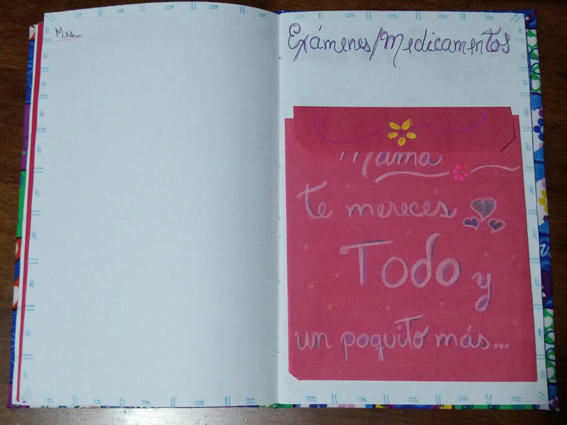 Mes
Exámenes/Medicamentos
Mamá
te mereces
Todo y
un poquito más...